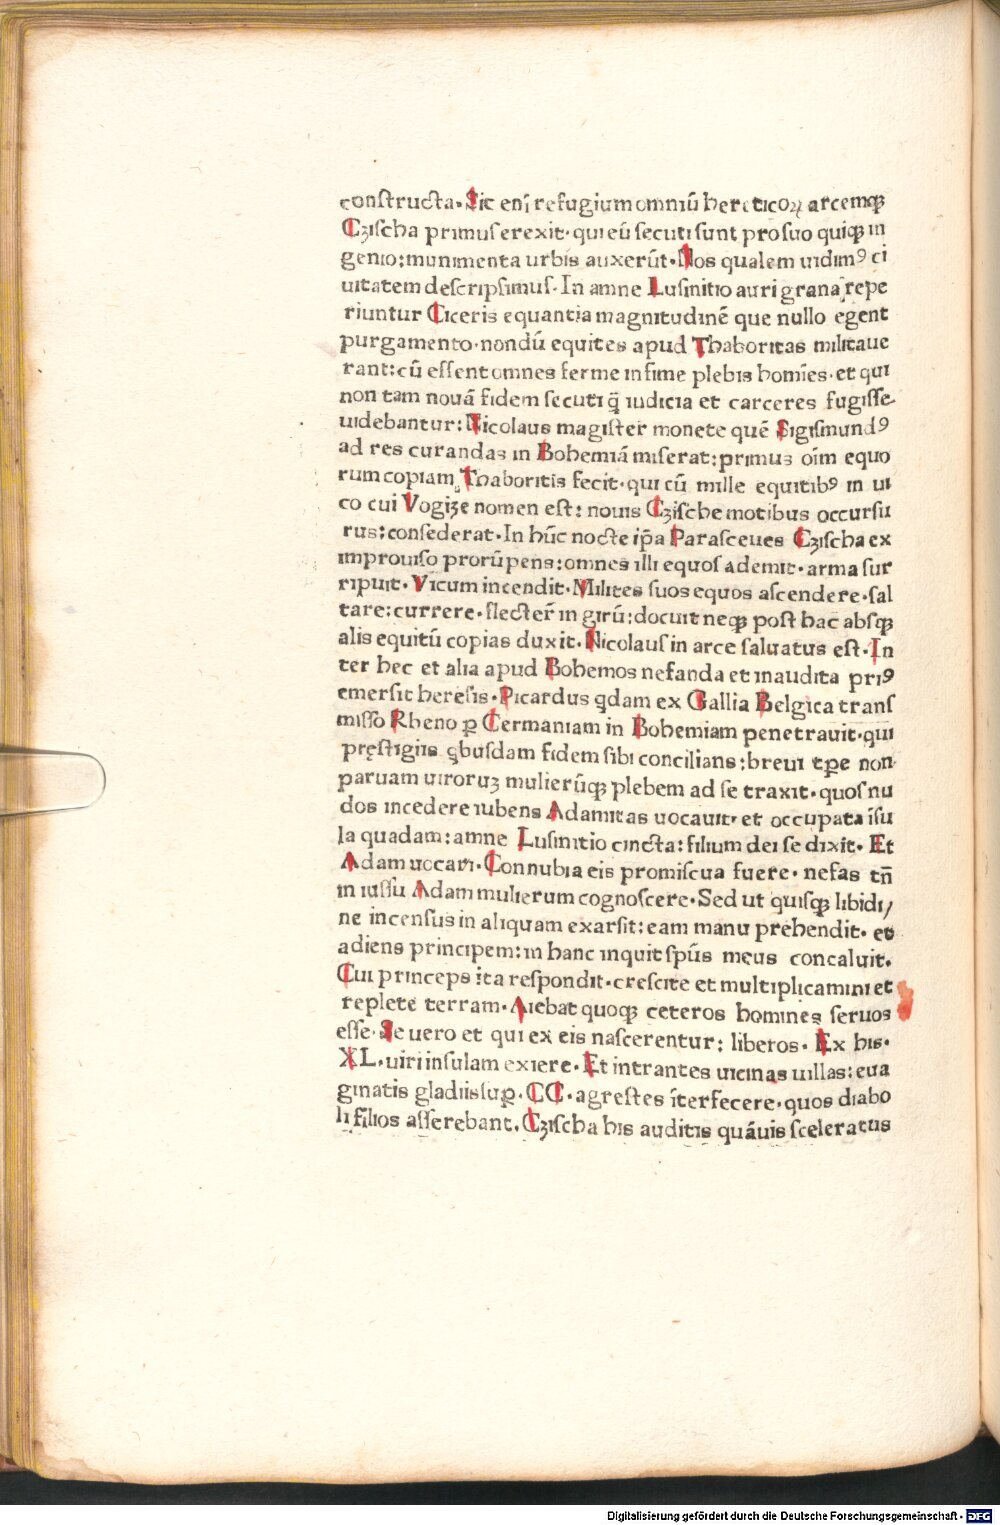 constructa. Sic eni̅ refugium omniū hereticoꝝ arcemqꝫ
Czischa primus erexit. qui eū secuti sunt pro suo quiqꝫ in
genio: munimenta urbis auxerūt. Nos qualem uidimꝰ ci
uitatem descripsimus. In amne Lusinitio auri grana repe
riuntur Ciceris equantia magnitudinē que nullo egent
purgamento. nondū equites apud Thaboritas militaue
rant: cū essent omnes ferme infime plebis homīes. et qui
non tam nouā fidem secuti q̄ iudicia et carceres fugisse
uidebantur: Nicolaus magister monete quē Sigismundꝰ
ad res curandas in Bohemiā miserat: primus oīm equo
rum copiam Thaboritis fecit. qui cū mille equitibꝰ in ui
co cui Vogize nomen est: nouis Czische motibus occursu
rus: consederat. In hūc nocte ip̄a Parasceues Czischa ex
improuiso prorūpens: omnes illi equos ademit. arma sur
ripuit. Vicum incendit. Milites suos equos ascendere. sal
tare: currere. flecter̄ in girū: docuit neqꝫ post hac absqꝫ
alis equitū copias duxit. Nicolaus in arce saluatus est. In
ter hec et alia apud Bohemos nefanda et inaudita priꝰ
emersit heresis. Picardus qdam ex Gallia Belgica trans
misso Rheno ꝑ Germaniam in Bohemiam penetrauit. qui
pręstigiis qbusdam fidem sibi concilians: breui tꝑe non
paruam uiroruꝫ mulierūqꝫ plebem ad se traxit. quos nu
dos incedere iubens Adamitas uocauit. et occupata īsu
la quadam: amne Lusinitio cincta: filium dei se dixit. Et
Adam uocari. Connubia eis promiscua fuere. nefas tn̄
in iussu Adam mulierum cognoscere. Sed ut quisqꝫ libidi/
ne incensus in aliquam exarsit: eam manu prehendit. et
adiens principem: in hanc inquit spūs meus concaluit.
Cui princeps ita respondit. crescite et multiplicamini et
replete terram. Aiebat quoqꝫ ceteros homines seruos
esse. Se uero et qui ex eis nascerentur: liberos. Ex his.
XL. uiri insulam exiere. Et intrantes uicinas uillas: eua
ginatis gladiis suꝑ. CC. agrestes īterfecere. quos diabo
li filios asserebant. Czischa his auditis quāuis sceleratus
Digitalisierung gefördert durch die Deutsche Forschungsgemeinschaft - DFG